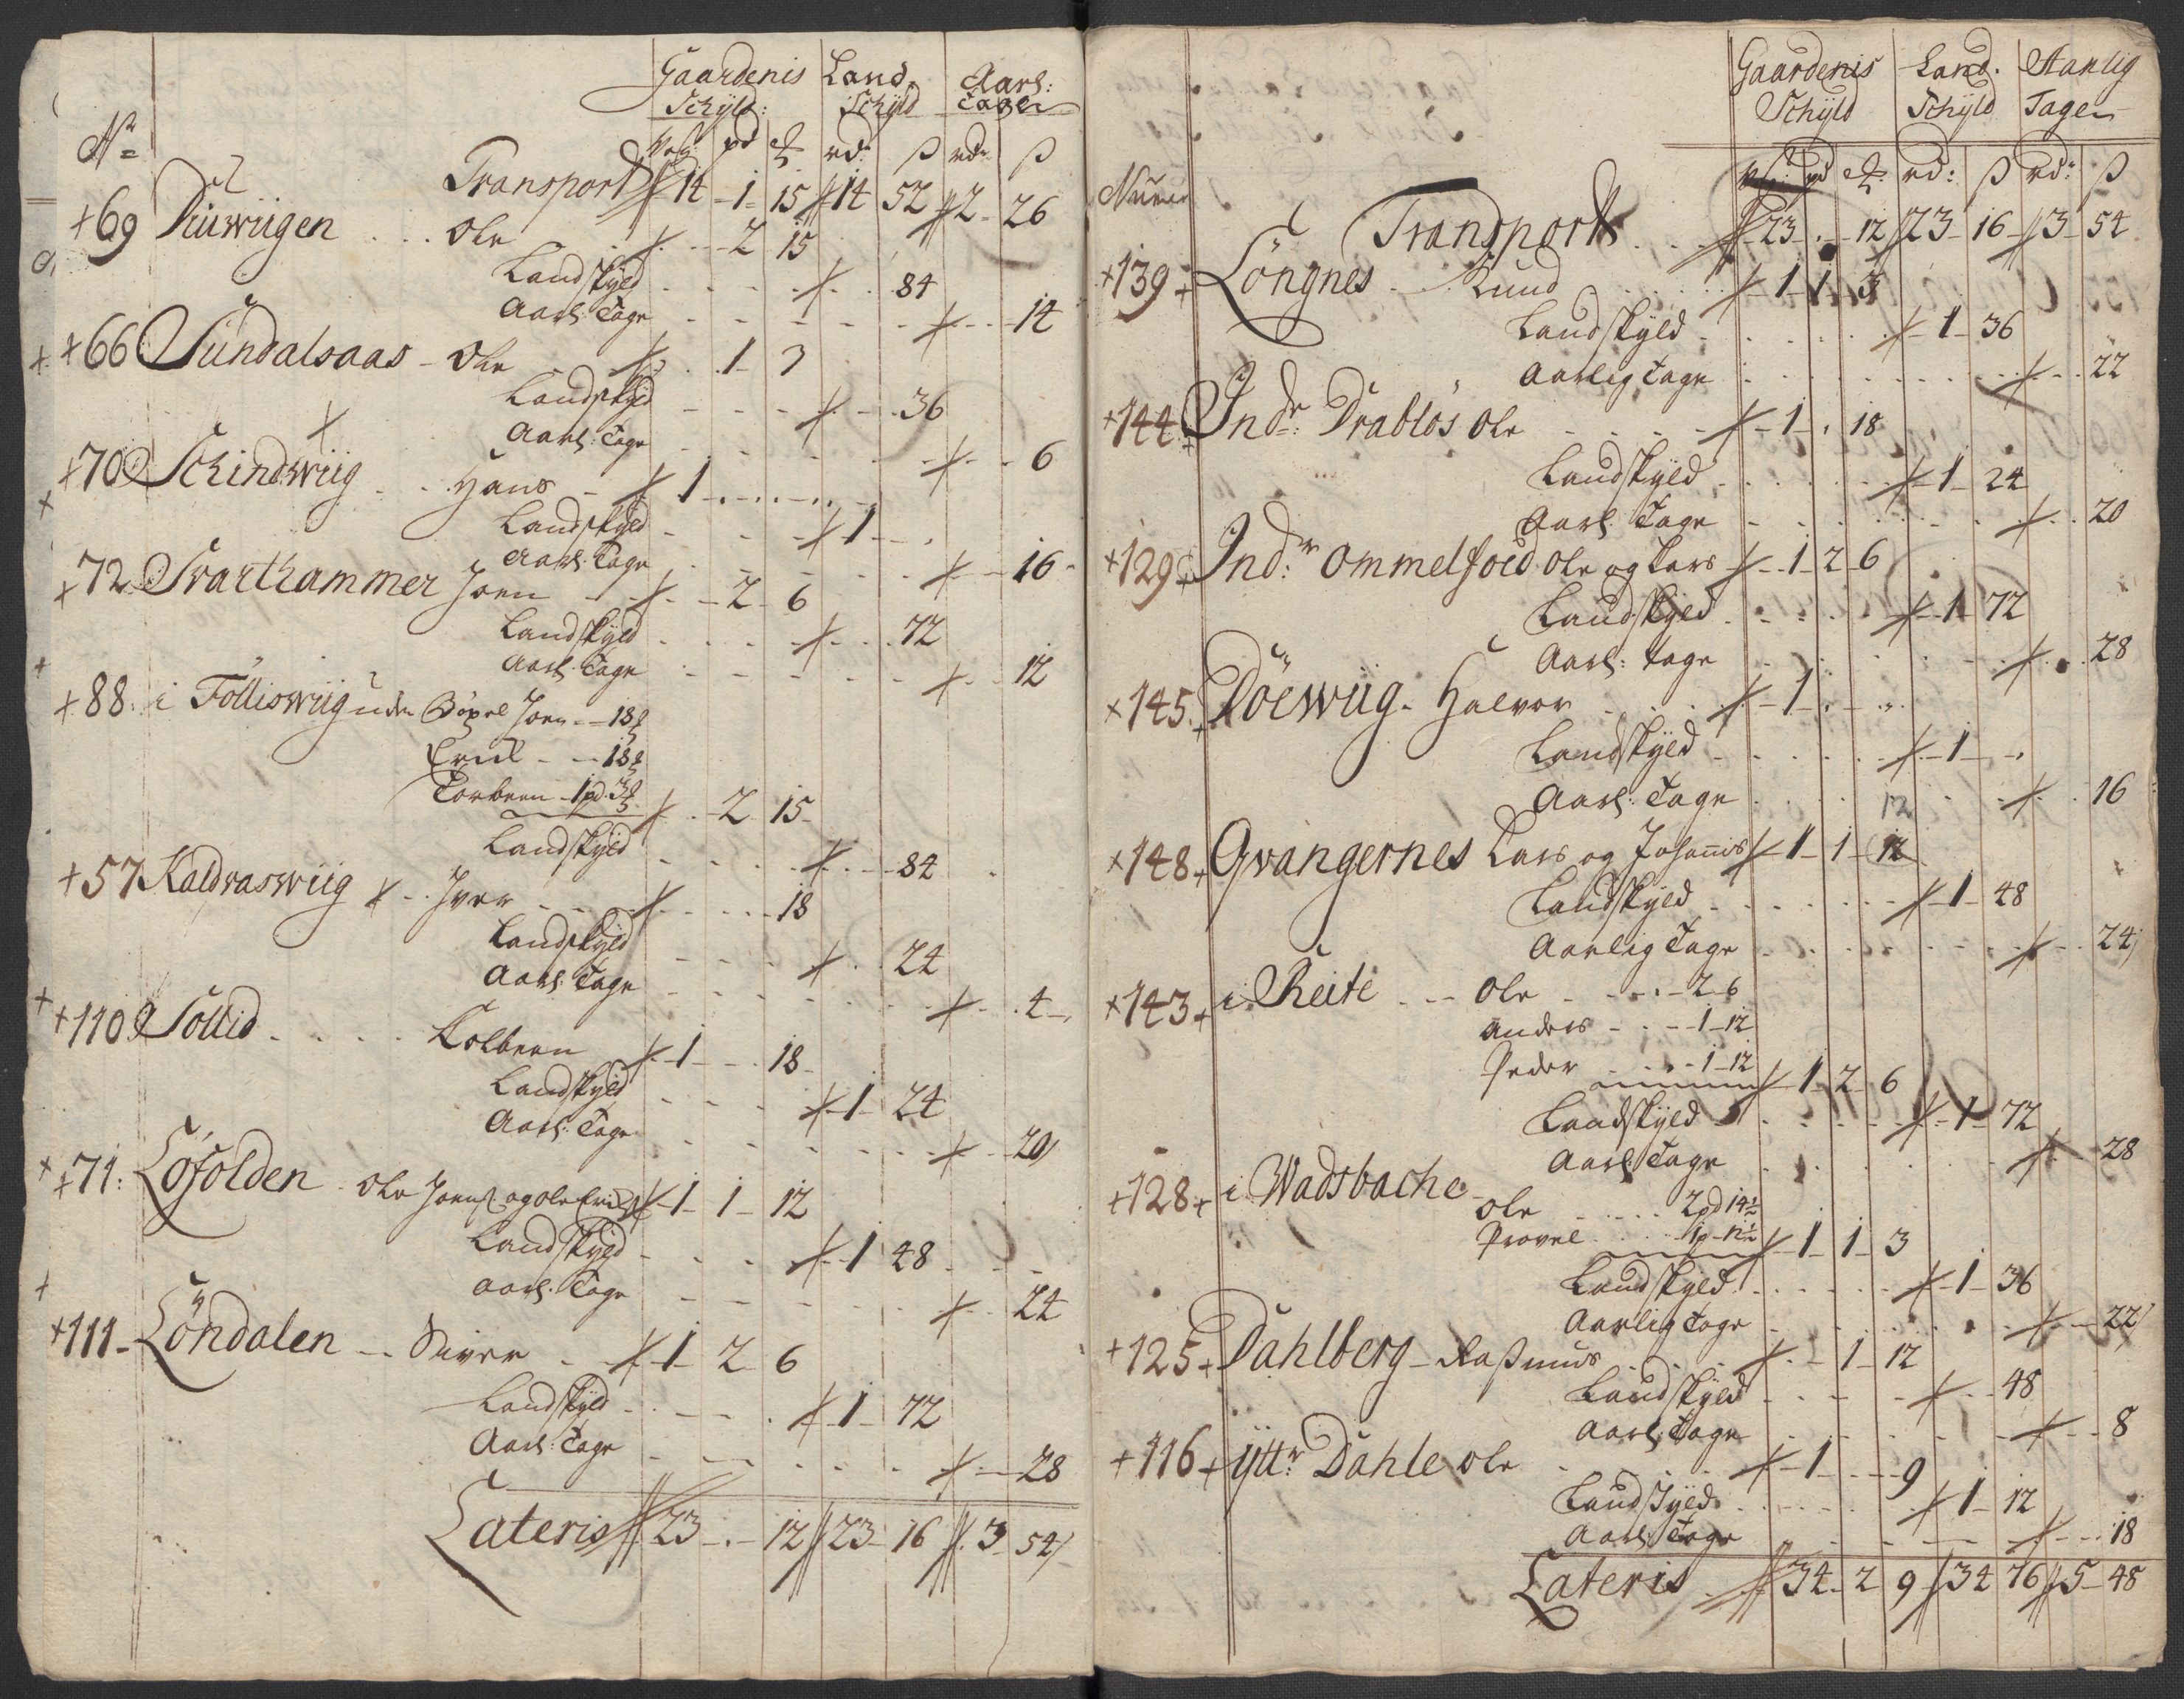 Gaardenis Land Aarl:
Schyld: Schyld Tage
No Wog: pd ℔ rd: β rd: β
Transport 14 1 15 14 52 2 26
69 Ole 2 15
Landskyld 84
Aarl: Tage 14
66 Sundalsaas Ole 1 3
Landskyld 36
Aarl: Tage 6
70 Schindwiig Hans 1
Landskyld 1
Aarl: Tage 16
72 Svarthammer Joen 2 6
Landskyld 72
Aarl: Tage 12
88 i Tolliswiig Joen 18
18
Torbeen 1 pd 3
2 15
Landskyld 84
57 Kaldvaswiig Iver 18
Landskyld 24
Aarl: Tage 4
110 Sollid Kolbeen 1 18
Landskyld 1 24
Aarl: Tage 20
71: Löfolden Ole Joens: og Ole 1 1 12
Landskyld 1 48
Aarl: Tage 24
111 Löndalen Siver 1 2 6
Landskyld 1 72
Aarl: Tage 28
Lateris 23 12 23 16 3 54
Gaardenis Land. Aarlig
Schyld Schyld Tage
pd ℔: rd: β rd: β
Transport 23 12 23 16 3 54
139 Löngnes Knud 1 1 3
Landskyld 1 36
Aarlig Tage 22
144 Indr: Drablös Ole 1 18
Landskyld 1 24
Aarl: Tage 20
129 Indr: Ommelfoed Ole og Lars 1 2 6
Landskyld 1 72
Aarl: Tage 28
145 Döewiig Halvor 1
Landskyld 1
Aarl: Tage 16
12
148 Qvangernes Lars og Johannis 1 1 12
Landskyld 1 48
Aarlig Tage 24
143 i Reite Ole 2 6
Anders 1 12
Peder 1 12
1 2 6
Landskyld 1 72
Aarl: Tage 28
128 i Wadsbache
Ole 2 pd 14½
Povel 1 p 12½
1 1 3
Landskyld 1 36
Aarlig Tage 22
125 Dahlberg Rasmus 1 12
Landskyld 48
Aarl: Tage 8
116 Yttr: Dahle Ole 1 9
Landskyld 1 12
Aarl: Tage 18
Lateris 34 2 9 34 76 5 48